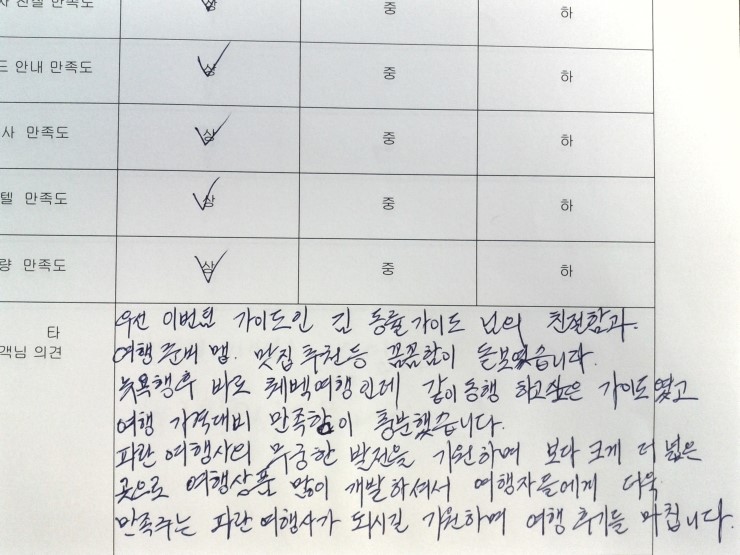 사 친절 만족도 상 중 하
드 안내 만족도 상 중 하
사 만족도 상 중 하
텔 만족도 상 중 하
량 만족도 상 중 하
타
객님 의견
우선 이번 가이드인 김 동률가이드 님의 친절함과.
여행 준비 맵. 맛집 추천등 꼼꼼함이 돋보였습니다.
뉴욕행후 바로 퀘벡여행인데 같이 동행 하고싶은 가이드였고
여행 가격대비 만족함이 충분했습니다.
파란 여행사의 무궁한 발전을 기원하며 보다 크게 더 넓은
곳으로 여행상품 많이 개발하셔서 여행자들에게 더욱
만족주는 파란여행사가 되시길 기원하며 여행 후기를 마칩니다.